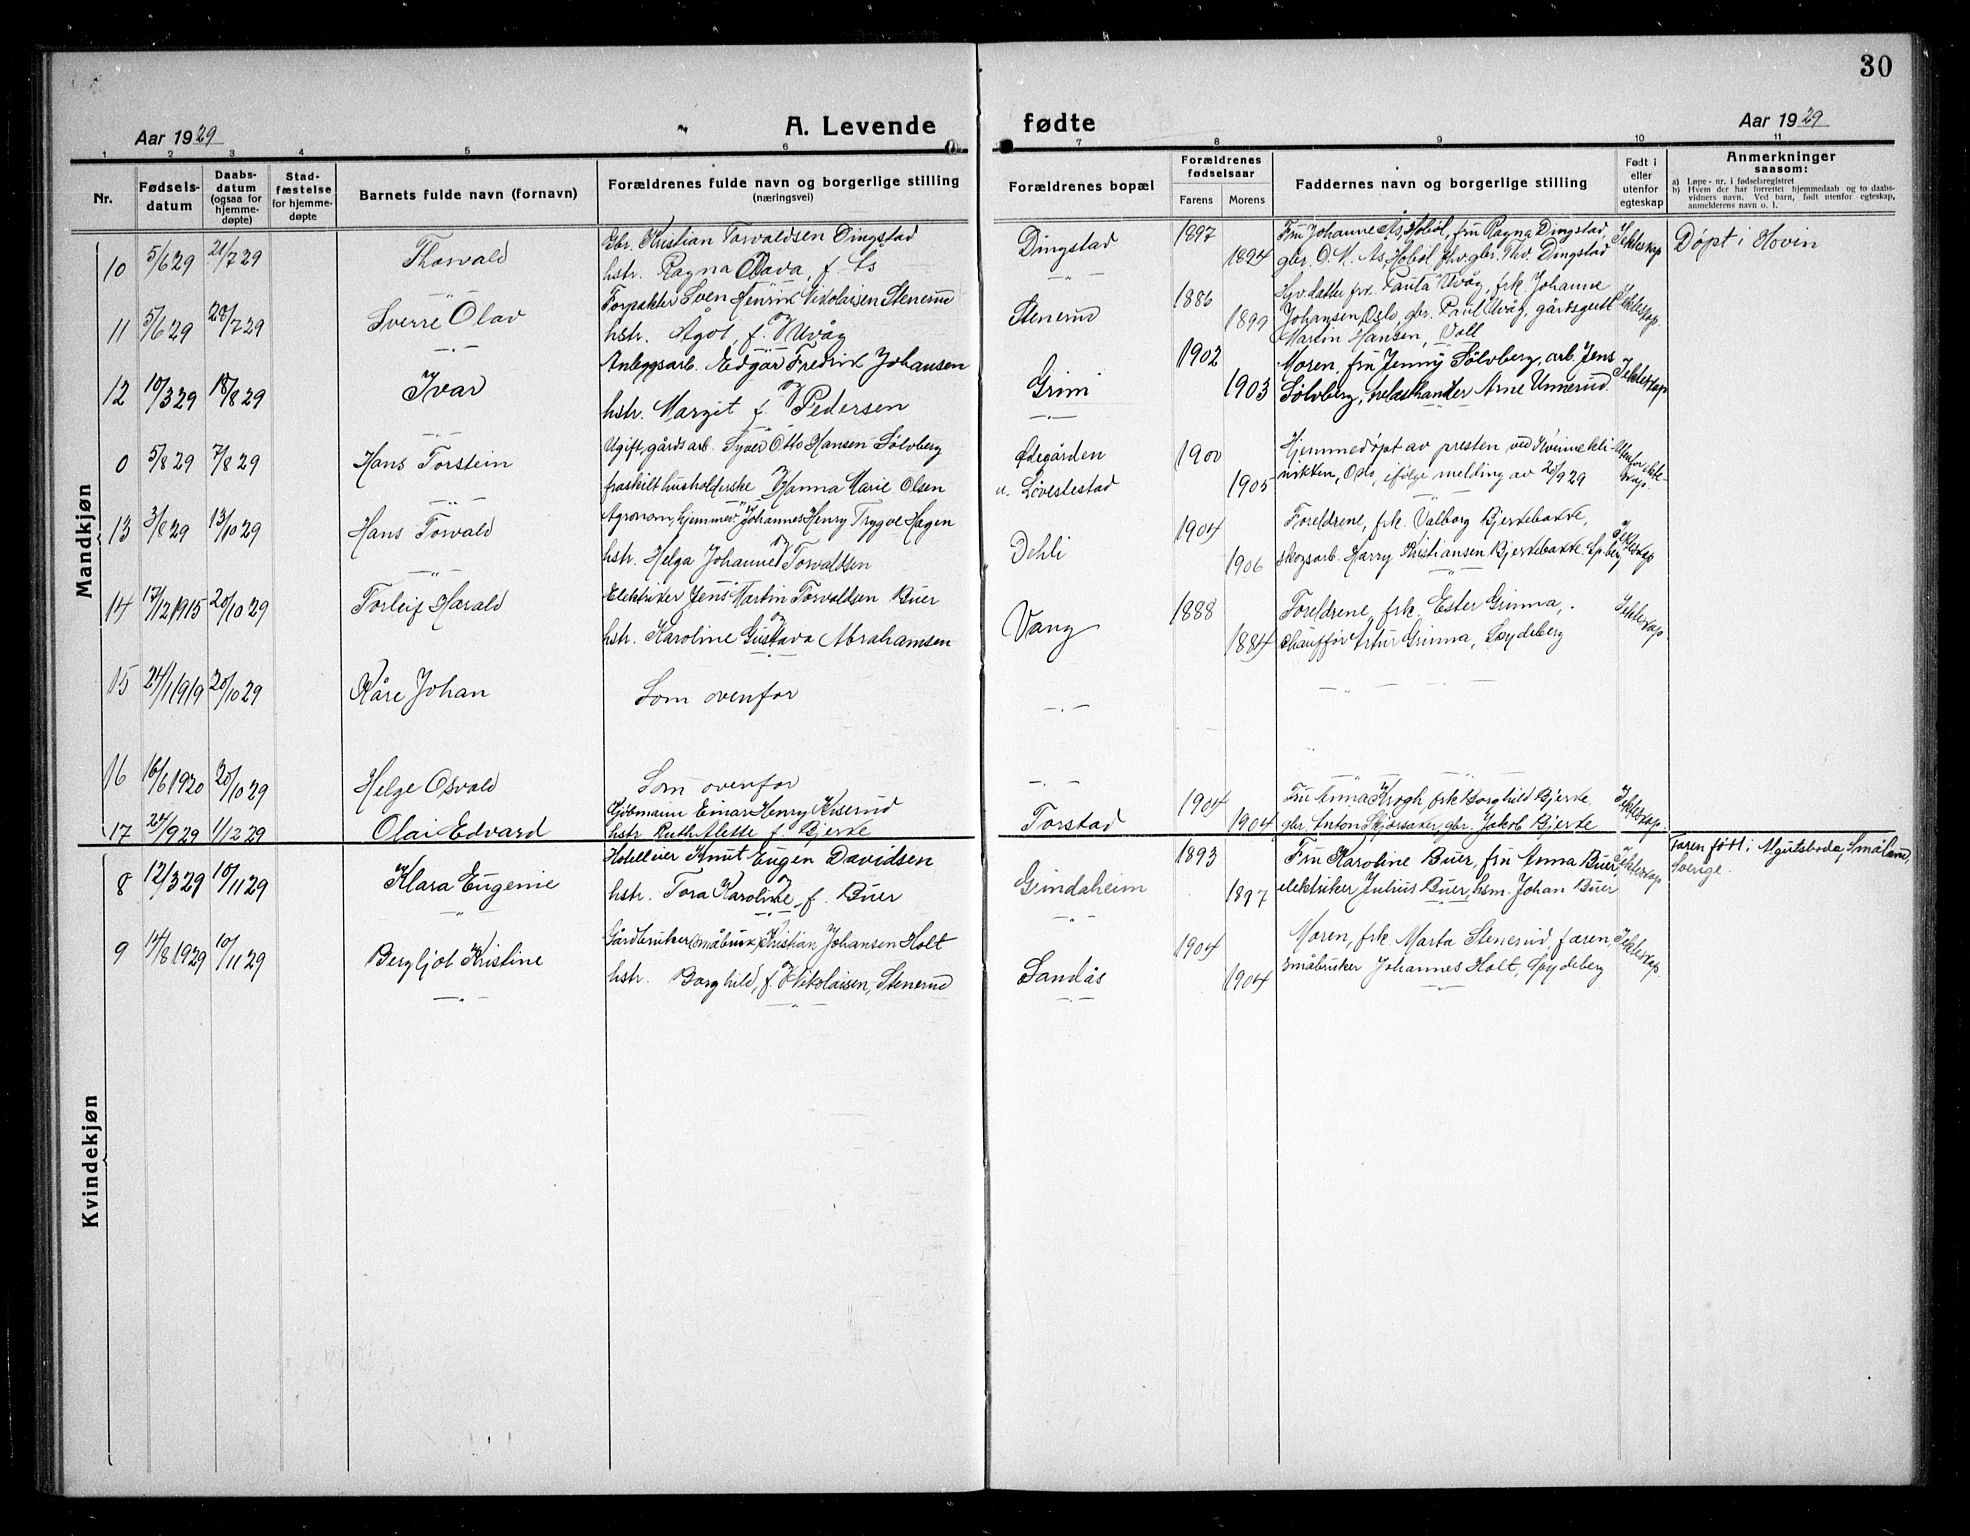 30
Aar 1929
A. Levende fødte
Aar 1929
1 2 3 4 5 6 7 8 9 10 11
Nr.
Fødselsdatum
Daabsdatum (ogsaa for hjemmedøpte)
Stadfæstelse for hjemmedøpte
Barnets fulde navn (fornavn)
Forældrenes fulde navn og borgerlige stilling
(næringsvei)
Forældrenes bopæl
Forældrenes fødselsaar
Farens Morens
Faddernes navn og borgerlige stilling
Født i eller utenfor egteskap
Anmerkninger saasom:
a) Løpe-nr. i fødselsregistret
b) Hvem der har forrettet hjemmedaab og to daabsvidners navn. Ved barn, født utenfor egteskap, anmelderens navn o. l.
Mandkjøn
10 5/6 29 21/7 29 Thorvald Gbr. Kristian Torvaldsen Dingstad Dingstad 1897 Fru Johanne Ås, Hobøl, fru Ragna Dingstad, I ekteskap Døpt i Hovin
hstr. Ragna Olava, f. Ås 1894 gbr. O. M. Ås, Hobøl, fhv. gbr. Thv. Dingstad
11 5/6 29 28/7 29 Sverre Olav Forpakter Sven Henrik Nikolaisen Stenerud Stenerud 1886 Hjv. datter frk. Paula Uvåg, frk Johanne I ekteskap
hstr. Ågot, f. Uvåg 1899 Johansen, Oslo, gbr. Paul Uvåg, gårdsgutt
Martin Hansen, Voll
12 10/3 29 18/8 29 Ivar Anleggsarb. Edgar Fredrik Johansen Grini 1902 Moren, fru Jenny Sølvberg, arb. Jens I ekteskap
hstr. Margit f. Pedersen 1903 Sølvberg, Arne Unnerud
0 5/8 29 7/8 29 Hans Torstein Ugift, gårdsarb. Syver Otto Hansen Sølvberg Ødegården 1900 Hjemmedøpt av presten ved Kvinnekli- Utenfor ekteskap.
fraskilt husholderske Hanna Marie Olsen u. Løvestad 1905 nikken, Oslo, ifølge melding av 20/9 29
13 3/8 29 13/10 29 Hans Torvald Agronom, hjemmev. Johannes Henry Trygve Hagen Dehli 1904 Foreldrene, frk. Valborg Bjerkebakke, I ekteskap
hstr. Helga Johanne Torvaldsen 1906 skogsarb. Harry Kristiansen Bjerkebakke. Sp.berg
14 17/12 1915 20/10 29 Torleif Harald Elektriker Jens Martin Torvaldsen Buer Vang 1888 Foreldrene, frk. Ester Grinna, I ekteskap
hstr. Karoline Gustava Abrahamsen 1884 Chauffør Artur Grinna, Spydeberg
15 24/1 1919 20/10 29 Kåre Johan Som ovenfor — " —
16 16/6 1920 20/10 29 Helge Osvald Som ovenfor — " —
17 24/9 29 1/12 29 Olai Edvard Kjøbmann Einar Henry Kiserud Torstad 1904 Fru Anna Krogh, frk Borghild Bjerke, I ekteskap
hstr Ruth Alette f. Bjerke 1904 gbr Anton Skjørsaker, gbr. Jakob Bjerke
Kvindekjøn
8 12/3 29 10/11 29 Klara Eugenie Hotelleier Knut Eugen Davidsen Grindaheim 1893 Fru Karoline Buer, fru Anna Buer, I ekteskap Faren født i Algutsboda, Småland, Sverige.
hstr. Tora Karoline, f. Buer 1897 elektriker Julius Buer, hsm. Johan Buer
9 14/8 1929 10/11 29 Bergljot Kristine Gårdbruker (småbruk) Kristian Johansen Holt Sandås 1904 Moren, frk Marta Stenerud, faren, I ekteskap.
hstr. Borghild, f. Nikolaisen, Stenerud 1904 småbruker Johannes Holt, Spydeberg